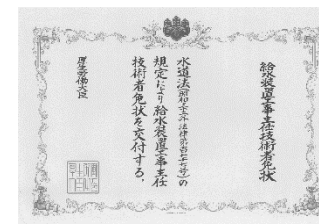 給水装置工事主任技術者免状
水道法（昭和三十二年法律第百七十七号）の
規定により給水装置工事主任
技術者免状を交付する。
厚生労働大臣